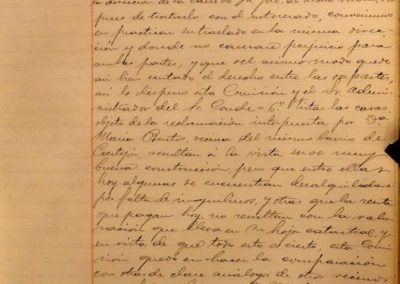 la divisoria de la calle
pues de tratarlo con el interesado, convinimos
en practicar su traslado en la misma direc-
ción y donde no causare perjuicio para
ambas partes, y que del mismo modo quede
así bien sentado el derecho entre las partes,
así lo dispuso esta Comisión y el Sr. Admi-
nistrador del Sr. Conde = 6º Vistas las casas
objeto de la reclamación interpuesta por Dª
María vecina del mismo barrio de
Castejón resultan á la vista ser de muy
buena construcción pero que entre ellas
hoy algunas se encuentran desalquiladas
por falta de inquilinos, y otras que la renta
que pagan hoy, no resultan con la valo-
ración que lleva en su hoja catastral, y
en vista de que todo esto es cierto, esta Comi-
sión quedó en hacer la comparación
con otras de clase análoga de otros vecinos